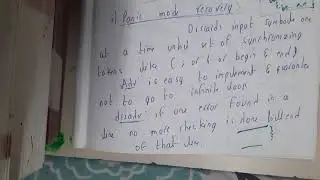 Panic mode recovery:
Discards input symbols one
at a time until set of synchronizing
tokens like ( ; or } or begin & end)
Adv is easy to implement & guarantee
not to go to infinite loop
disadv if one error found in a
line no more checking is done till end
of that line